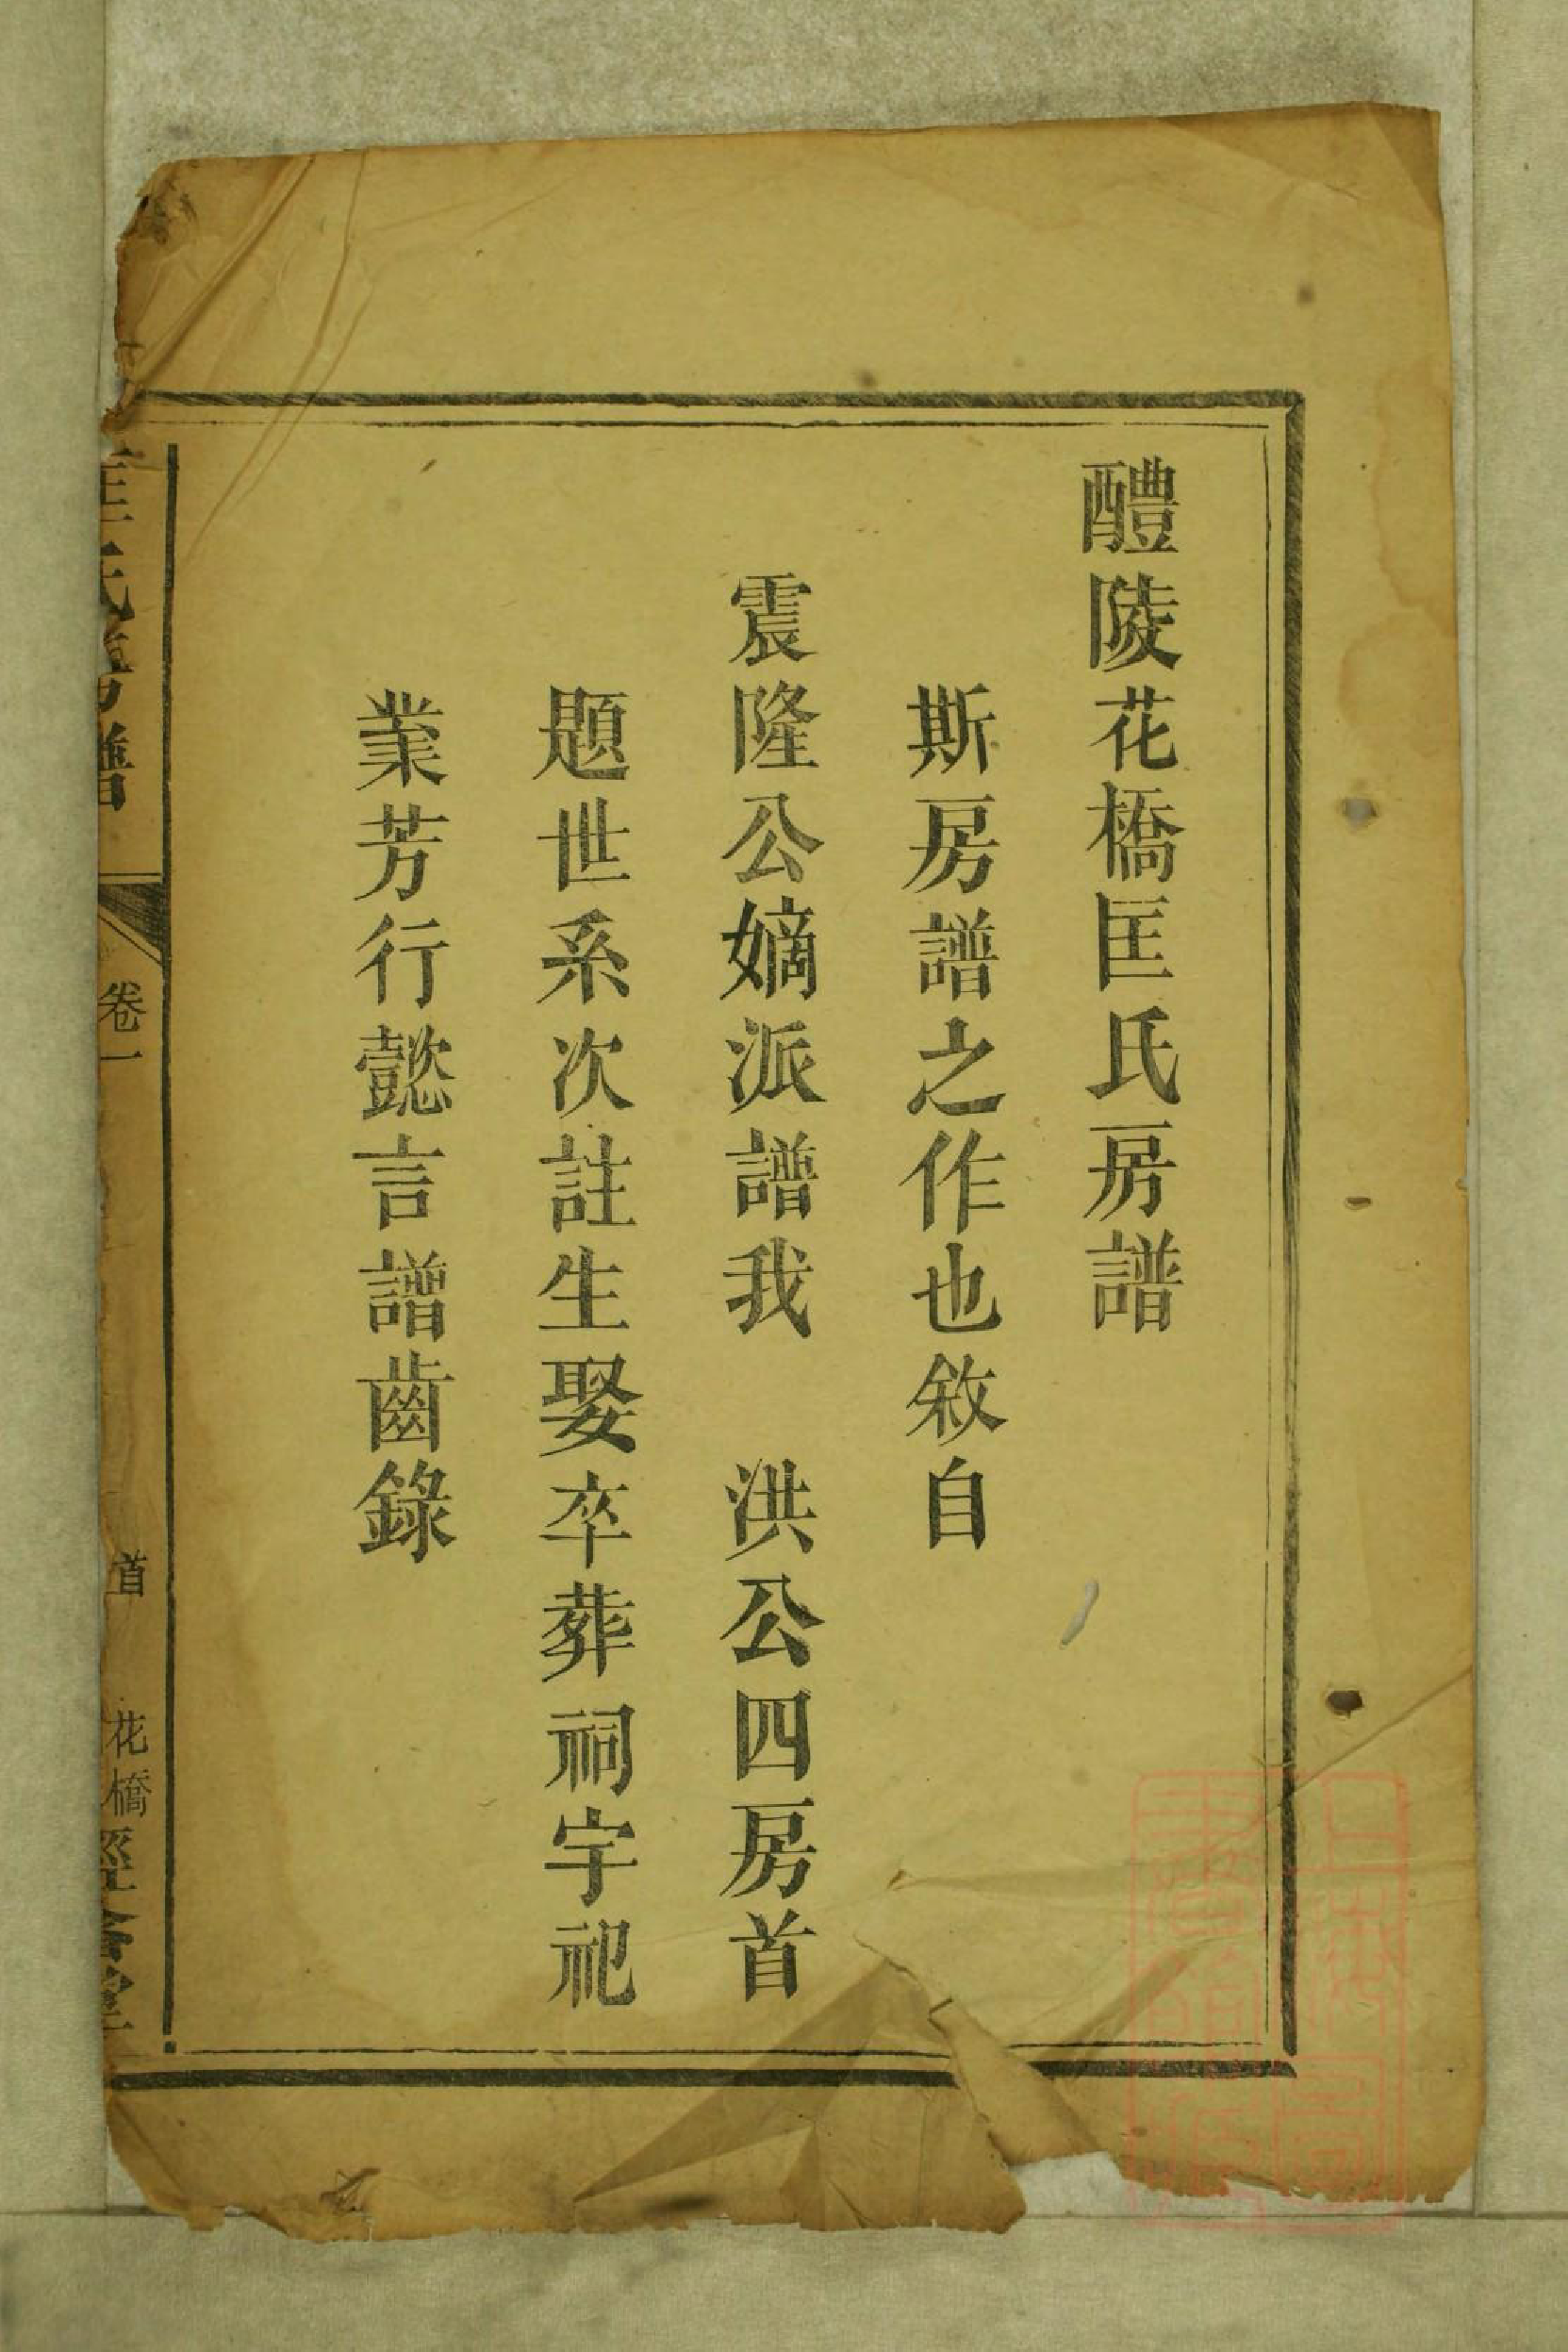 醴陵花橋匡氏房譜
斯房譜之作也敘自
震隆公嫡派譜我　洪公四房首
題世系次註生娶卒葬祠宇祀
業芳行懿言譜齒錄
匡氏房譜
卷一
首
花橋